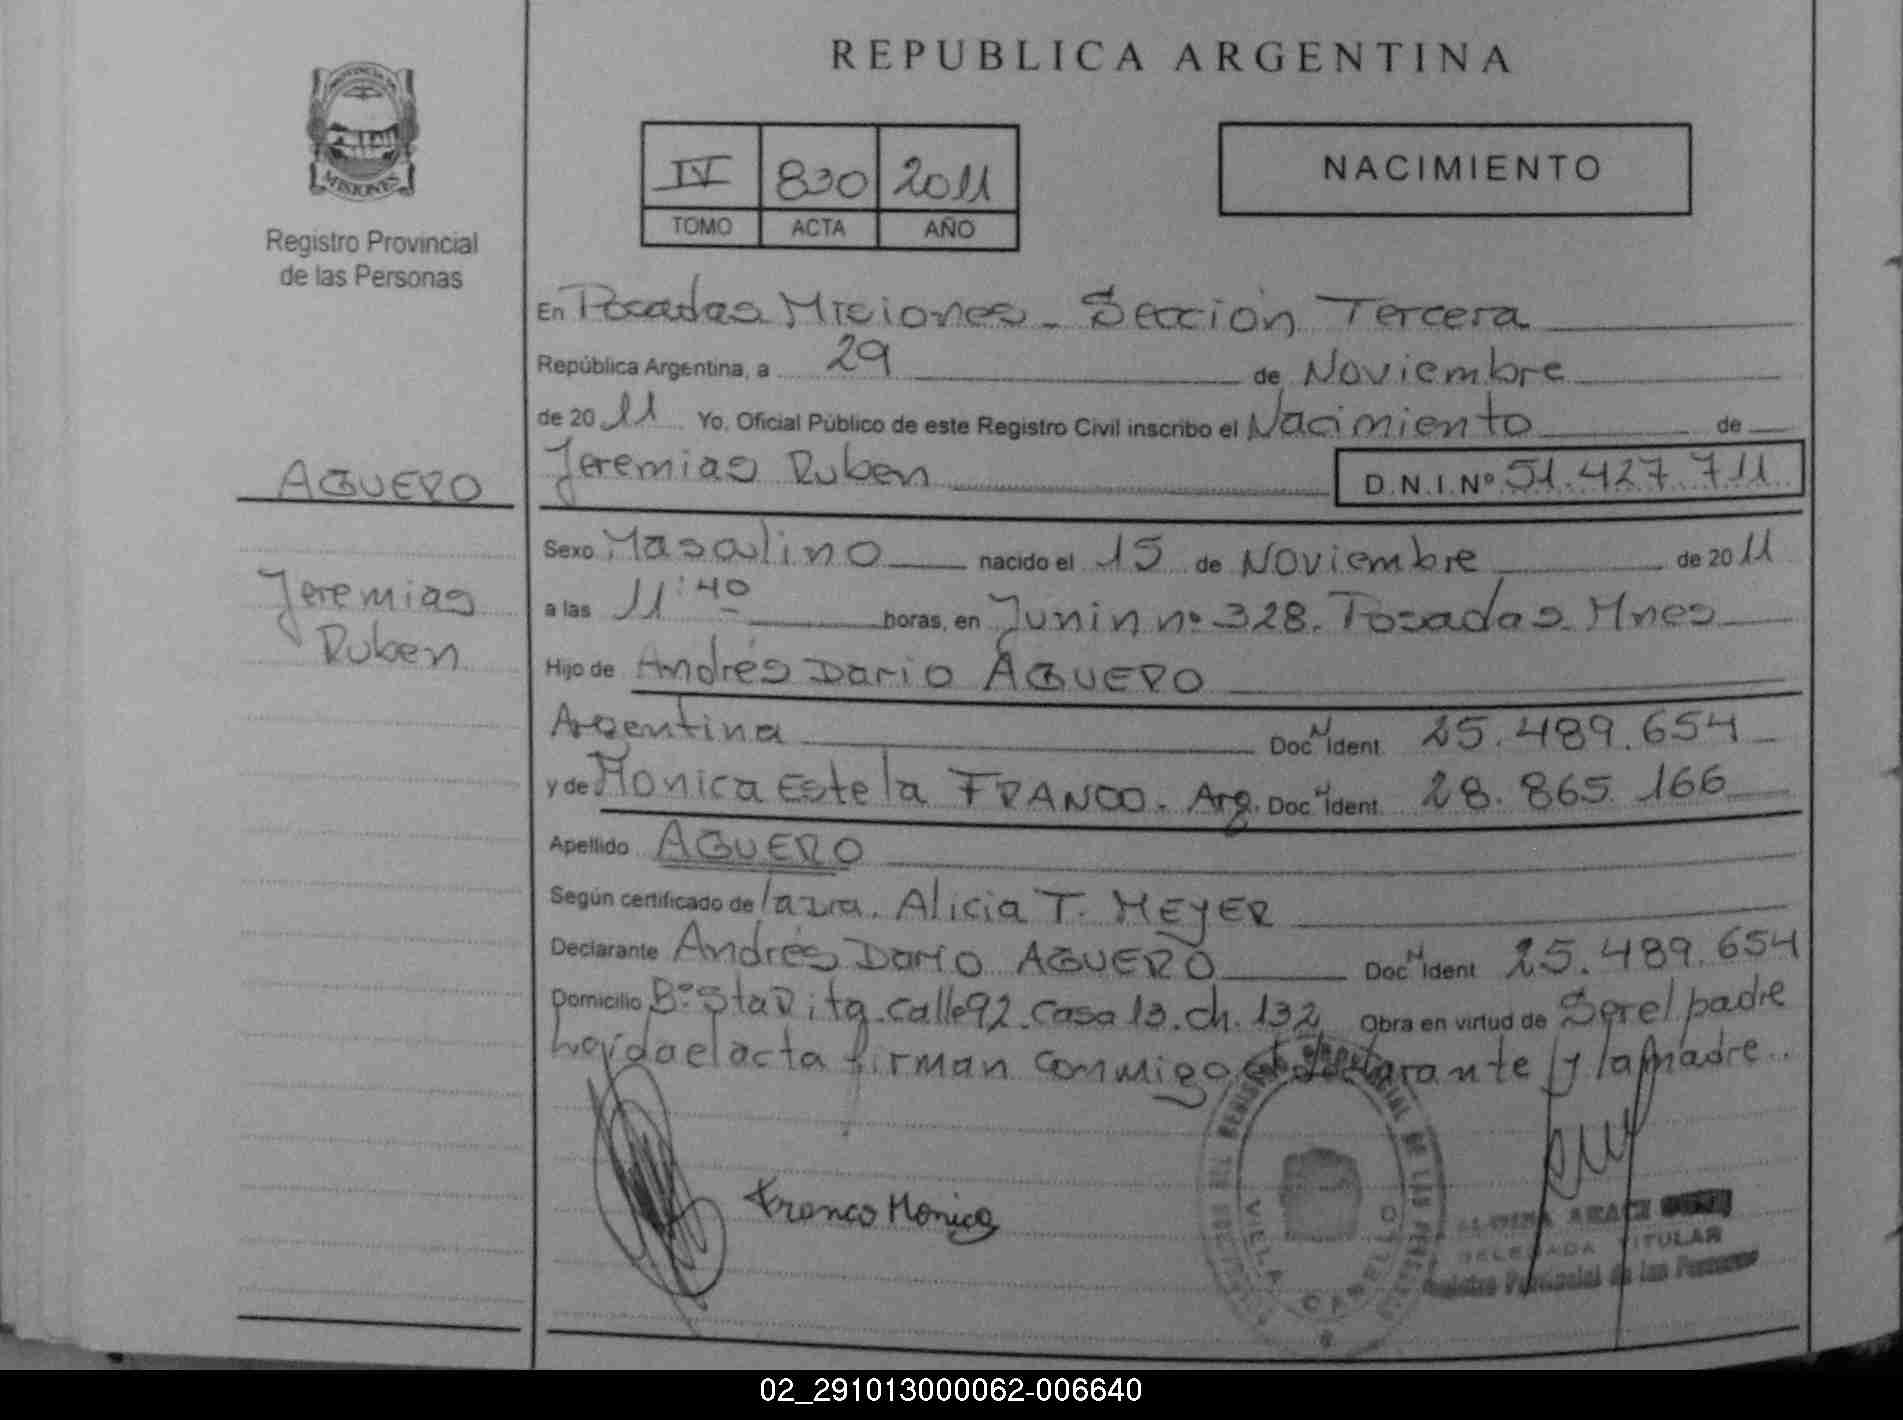 REPUBLICA ARGENTINA
PROVINCIA DE
MISIONES
Registro Provincial
de las Personas
IV 830 2011
TOMO ACTA AÑO
NACIMIENTO
En Posadas Misiones - Sección Tercera
República Argentina, a 29 de Noviembre
de 2011 Yo, Oficial Público de este Registro Civil inscribo el Nacimiento de
Jeremias Ruben D.N.I.Nº 51.427.711
AGUERO
Jeremias
Ruben
Sexo Masculino nacido el 15 de Noviembre de 2011
a las 11:40 horas, en Junin nº 328. Posadas. Mnes
Hijo de Andrés Dario AGUERO
Argentina Doc N Ident. 25.489.654
y de Monica Estela FRANCO. Arg. Doc N Ident. 28.865.166
Apellido AGUERO
Según certificado de la Alicia T. MEYER
Declarante Andrés Dario AGUERO Doc N Ident 25.489.654
Domicilio Bº Sta Rita. Calle 92. Casa 13. ch. 132 Obra en virtud de Ser el padre
Leida el acta firman conmigo el declarante y la madre.
Franco Monica
REGISTRO PROVINCIAL DE LAS PERSONAS
DELEGADA TITULAR
Registro Provincial de las Personas
02_291013000062-006640